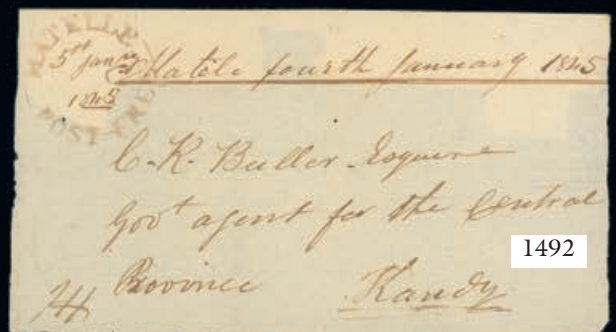 MATELLE
5th Jany
1845
POST FREE
Matele fourth January 1845
C. R. Buller Esquire
Govt agent for the Central
Province Kandy
1492